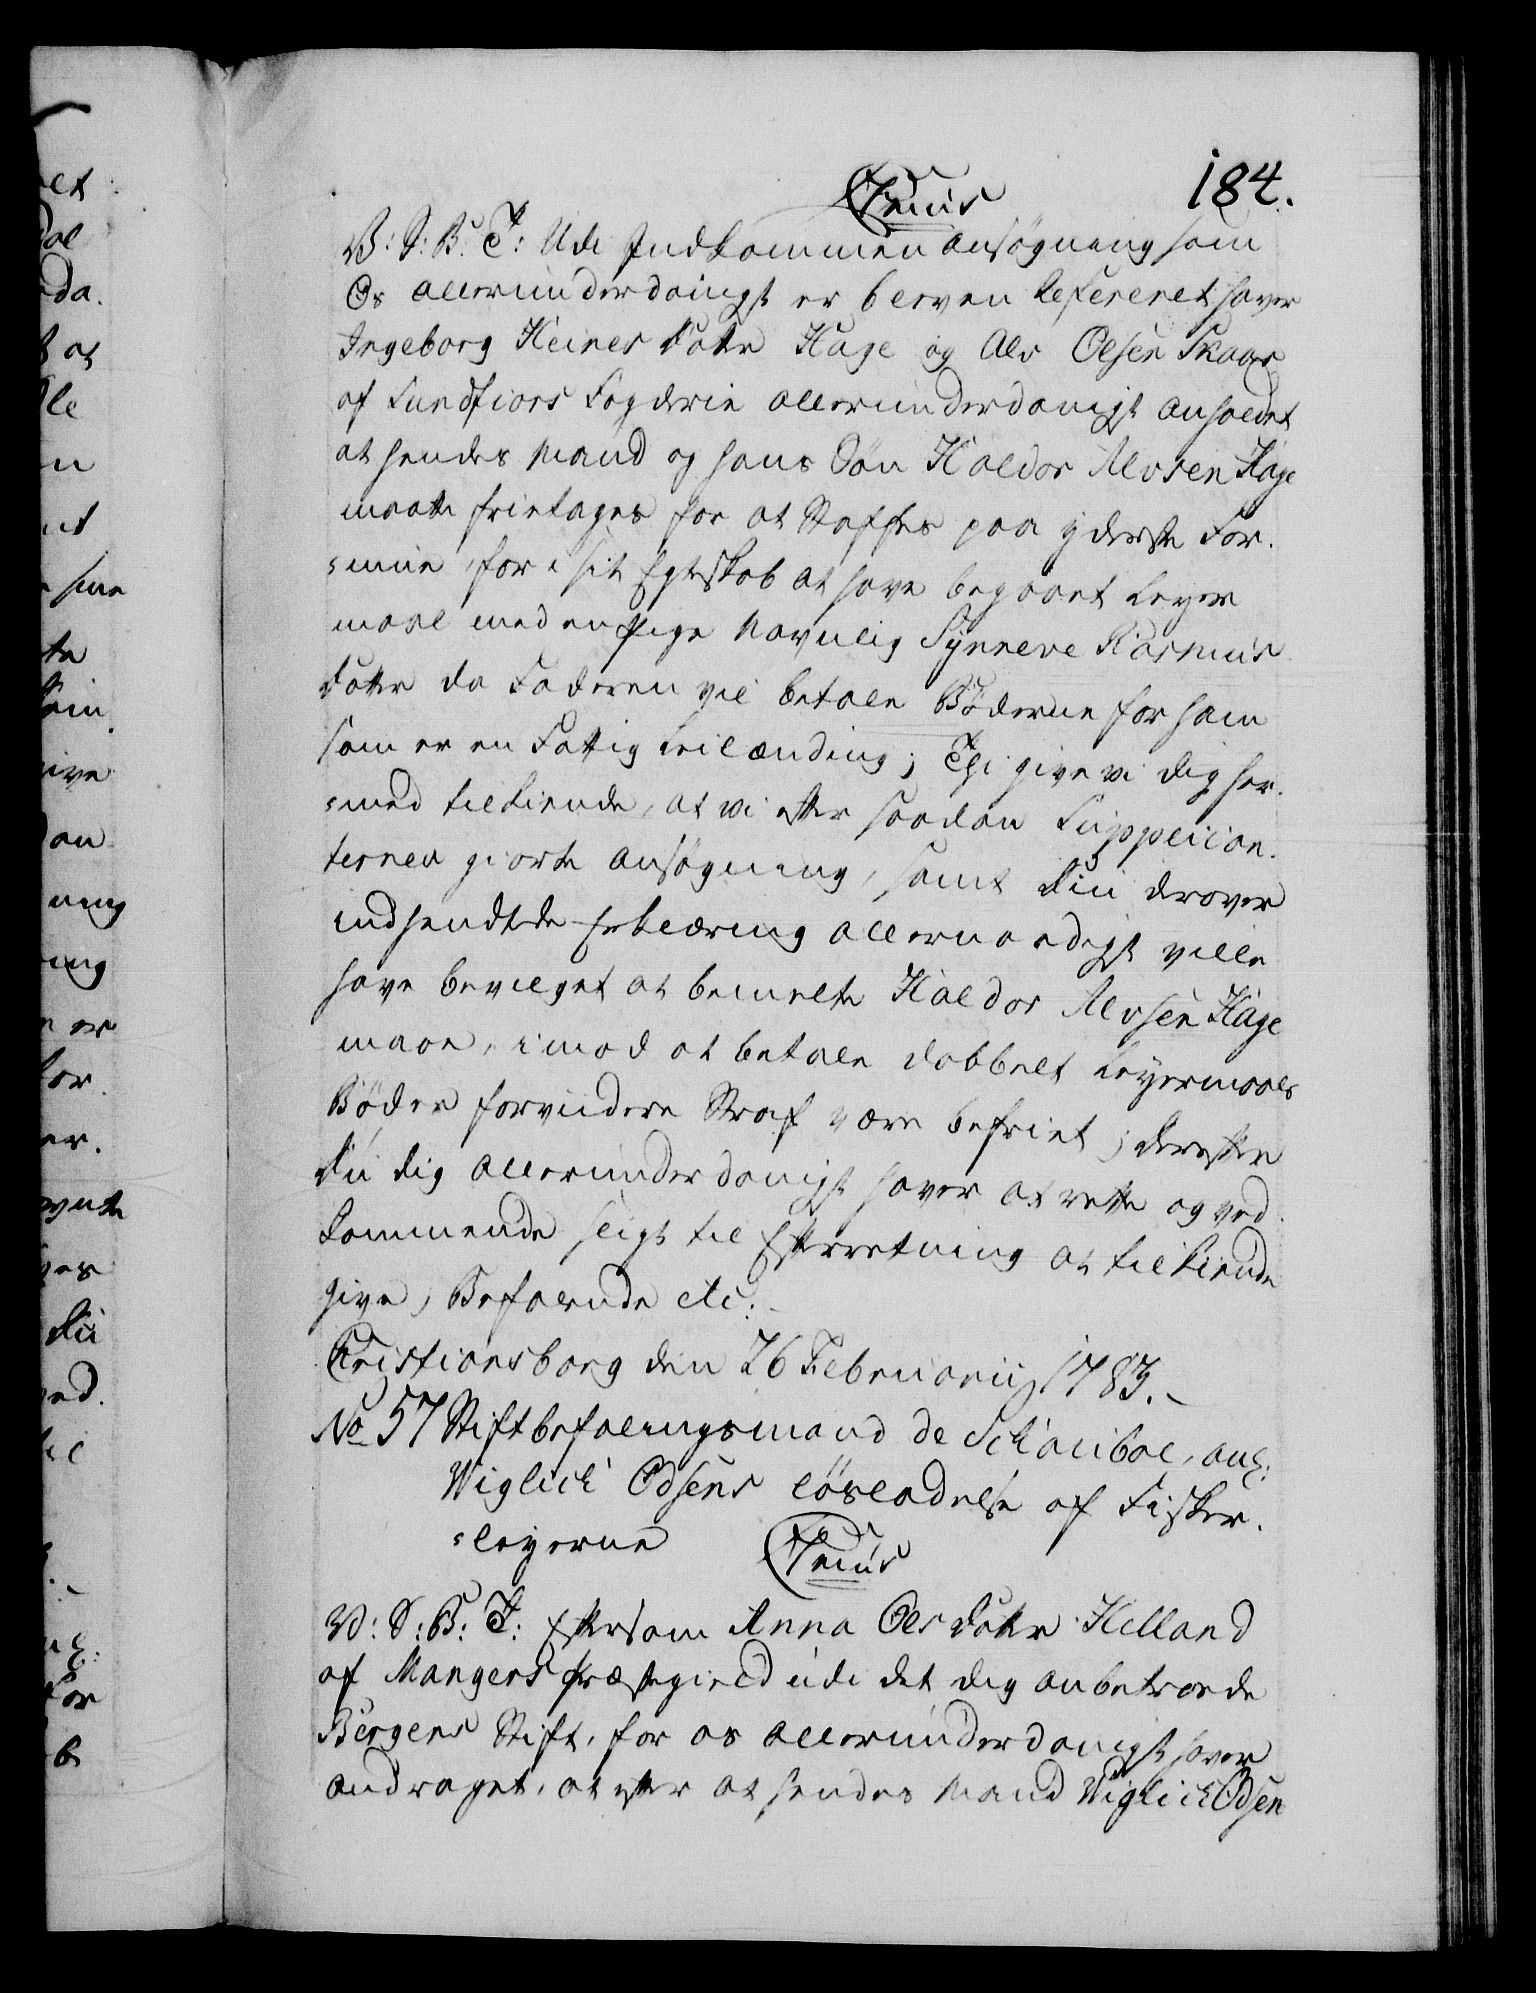 184.
Cheüs
V: S: B: T: Udi Indkommen ansögning som
Os allerunderdanigst er bleven Refereret haver
Ingeborg Heines dotter Hage og Alv Olsen Skaar
af Sundfiors Fogderie allerunderdanigst anholdet
at hendes Mand og hans Sön Haldor Alvsen Hage
maatte fritages for at Straffes paa yderste For-
=mue, for i sit Egteskab at have begaaet Leyer
maal med en Pige Navnlig Synneve Rasmus
dotter da Faderen vil betale Böderne for ham
som er en Fattig Leilænding; Thi give vi dig her-
=med tilkiende, at vi efter saadan Supplican-
ternes giorte ansögning, samt din derover
indsendtede Erklæring allernaadigst ville
have bevilget at bemelte Haldor Alvsen Hage
maae, imod at betale dobbelt Leyermaals
Böder forvidere Straf være befriet; derefter
du dig allerunderdanigst haver at rette og ved-
kommende sligt til Efterretning at tilkiende
give, Befalende etc:
Cristiansborg den 26 Februarii 1783.
No 57 Stiftbefalingsmand de Schouboe, anl:
Wiglich Odsens lösladelse af Fisker-
=leyerne Cheüs
V: S: B: T: Eftersom Anna Olsdotter Helland
af Mangers Præstegield udi det dig anbetroede
Bergens Stift, for os allerunderdanigst haver
andraget, at efter at hendes Mand Wiglich Odsen